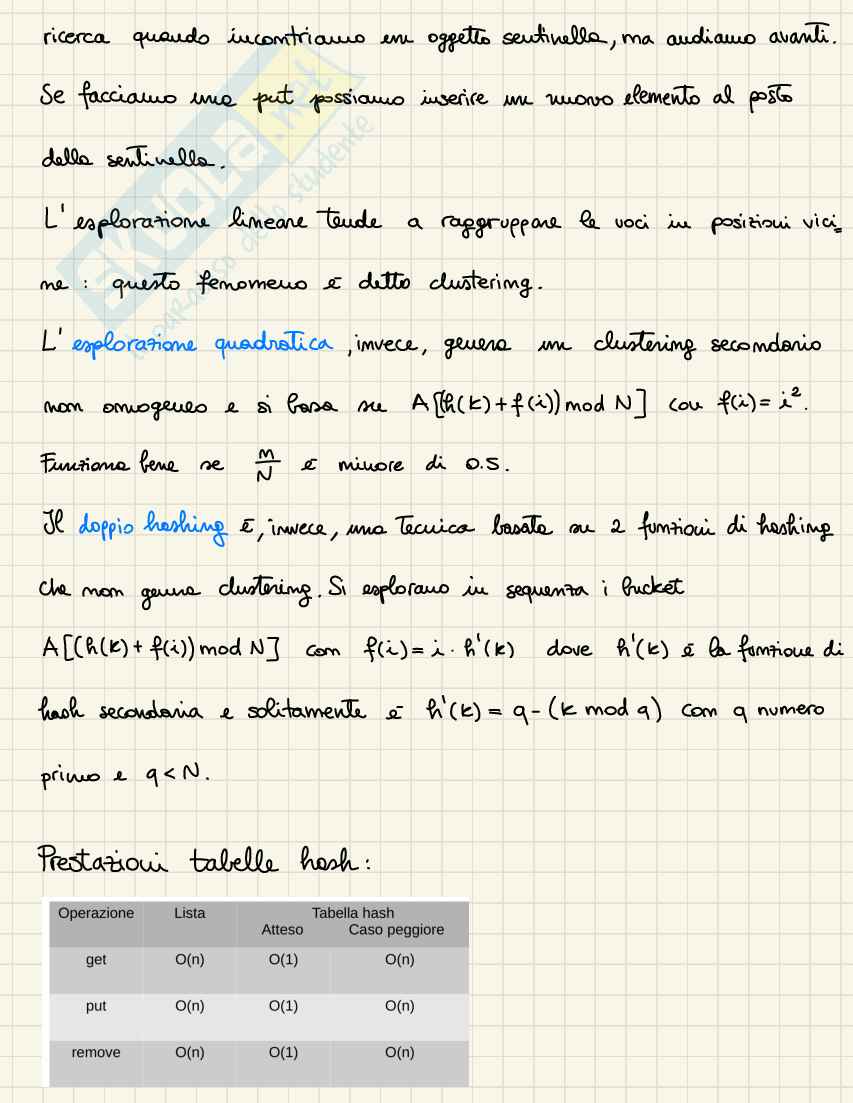 ricerca quando incontriamo un oggetto sentinella, ma andiamo avanti.
Se facciamo una put possiamo inserire un nuovo elemento al posto
della sentinella.
L'esplorazione lineare tende a raggruppare le voci in posizioni vici=
ne : questo fenomeno è detto clustering.
L'esplorazione quadratica, invece, genera un clustering secondario
non omogeneo e si basa su A[(h(k)+f(i)) mod N] con f(i)=i².
Funziona bene se m/N è minore di 0.5.
Il doppio hashing è, invece, una tecnica basata su 2 funzioni di hashing
che non genera clustering. Si esplorano in sequenza i bucket
A[(h(k)+f(i)) mod N] con f(i)=i·h'(k) dove h'(k) è la funzione di
hash secondaria e solitamente è h'(k)=q-(k mod q) con q numero
primo e q<N.
Prestazioni tabelle hash:
Operazione Lista Tabella hash
Atteso Caso peggiore
get O(n) O(1) O(n)
put O(n) O(1) O(n)
remove O(n) O(1) O(n)
SKUOLA.net
il paradiso dello studente